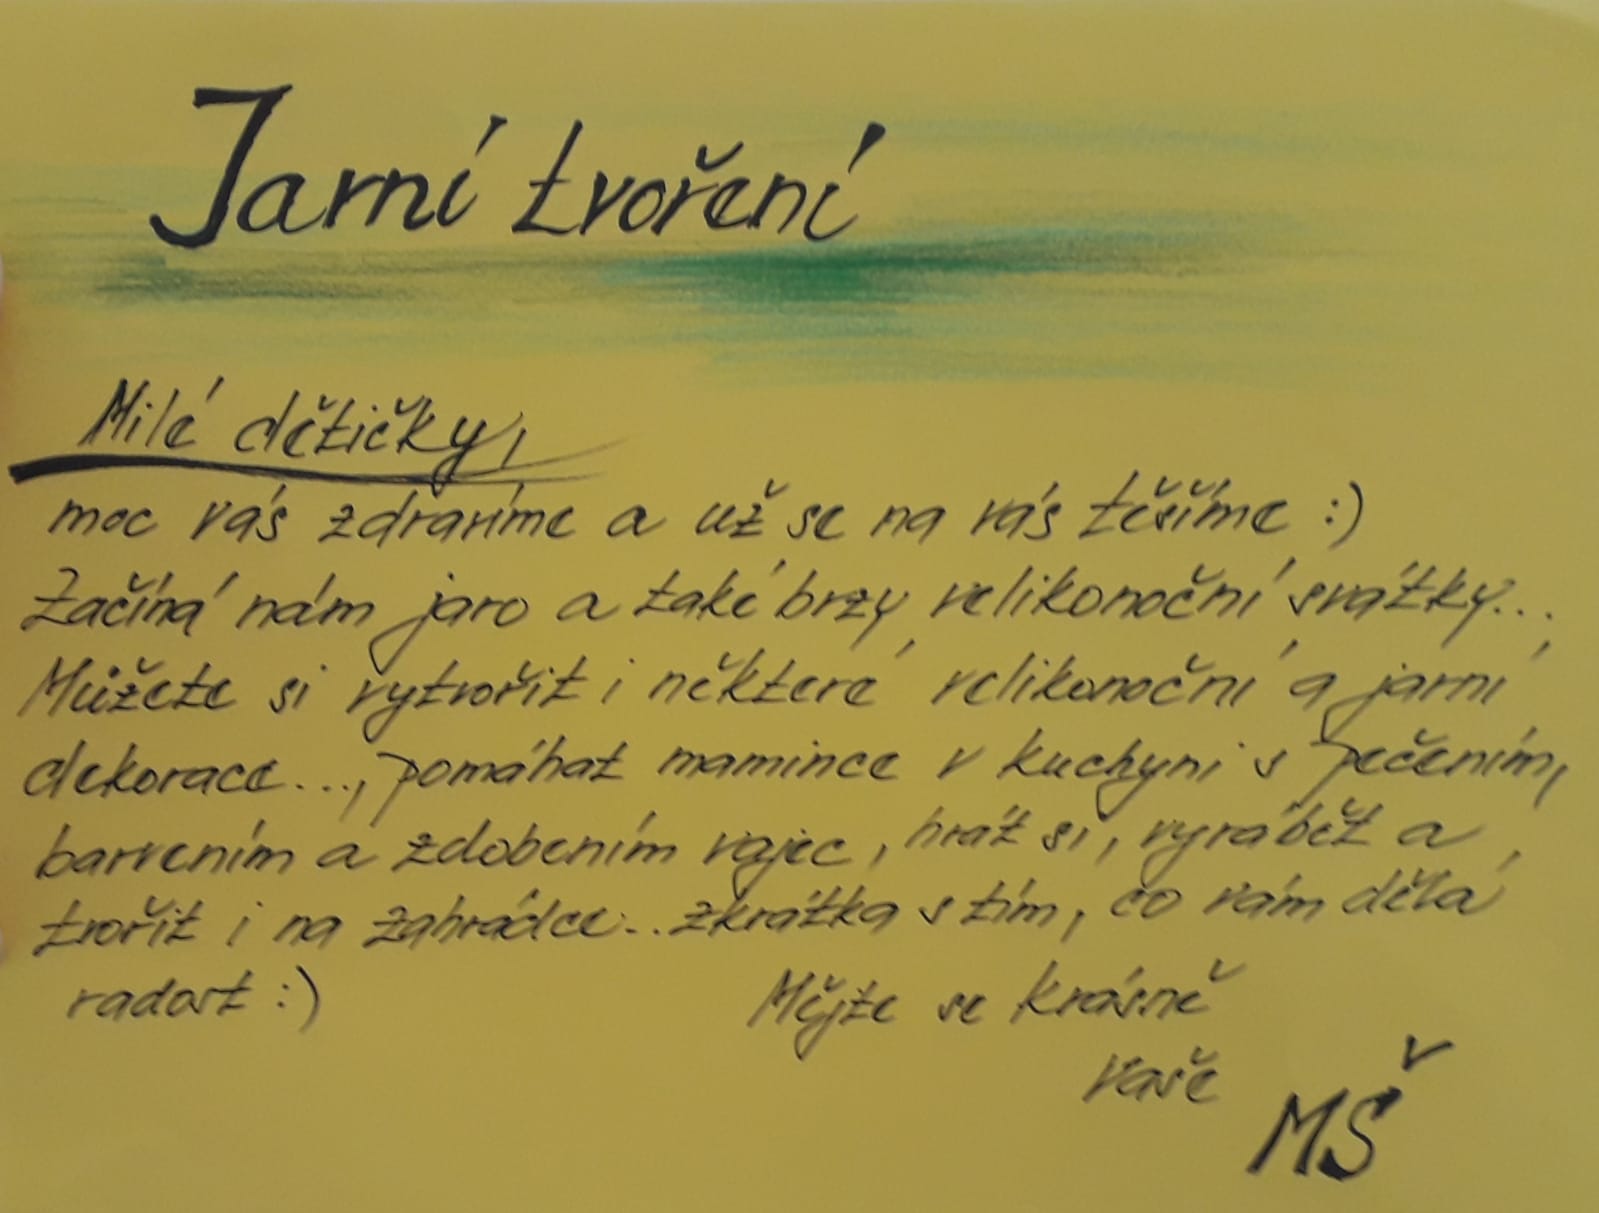 Jarní tvoření
Milé dětičky,
moc vás zdravíme a už se na vás těšíme :)
Začíná nám jaro a také brzy velikonoční svátky...
Můžete si vytvořit i některé velikonoční a jarní
dekorace..., pomáhat mamince v kuchyni s pečením,
barvením a zdobením vajec, hrát si, vyrábět a
tvořit i na zahrádce... zkrátka s tím, co vám dělá
radost :)
Mějte se krásně
vaše
MŠ